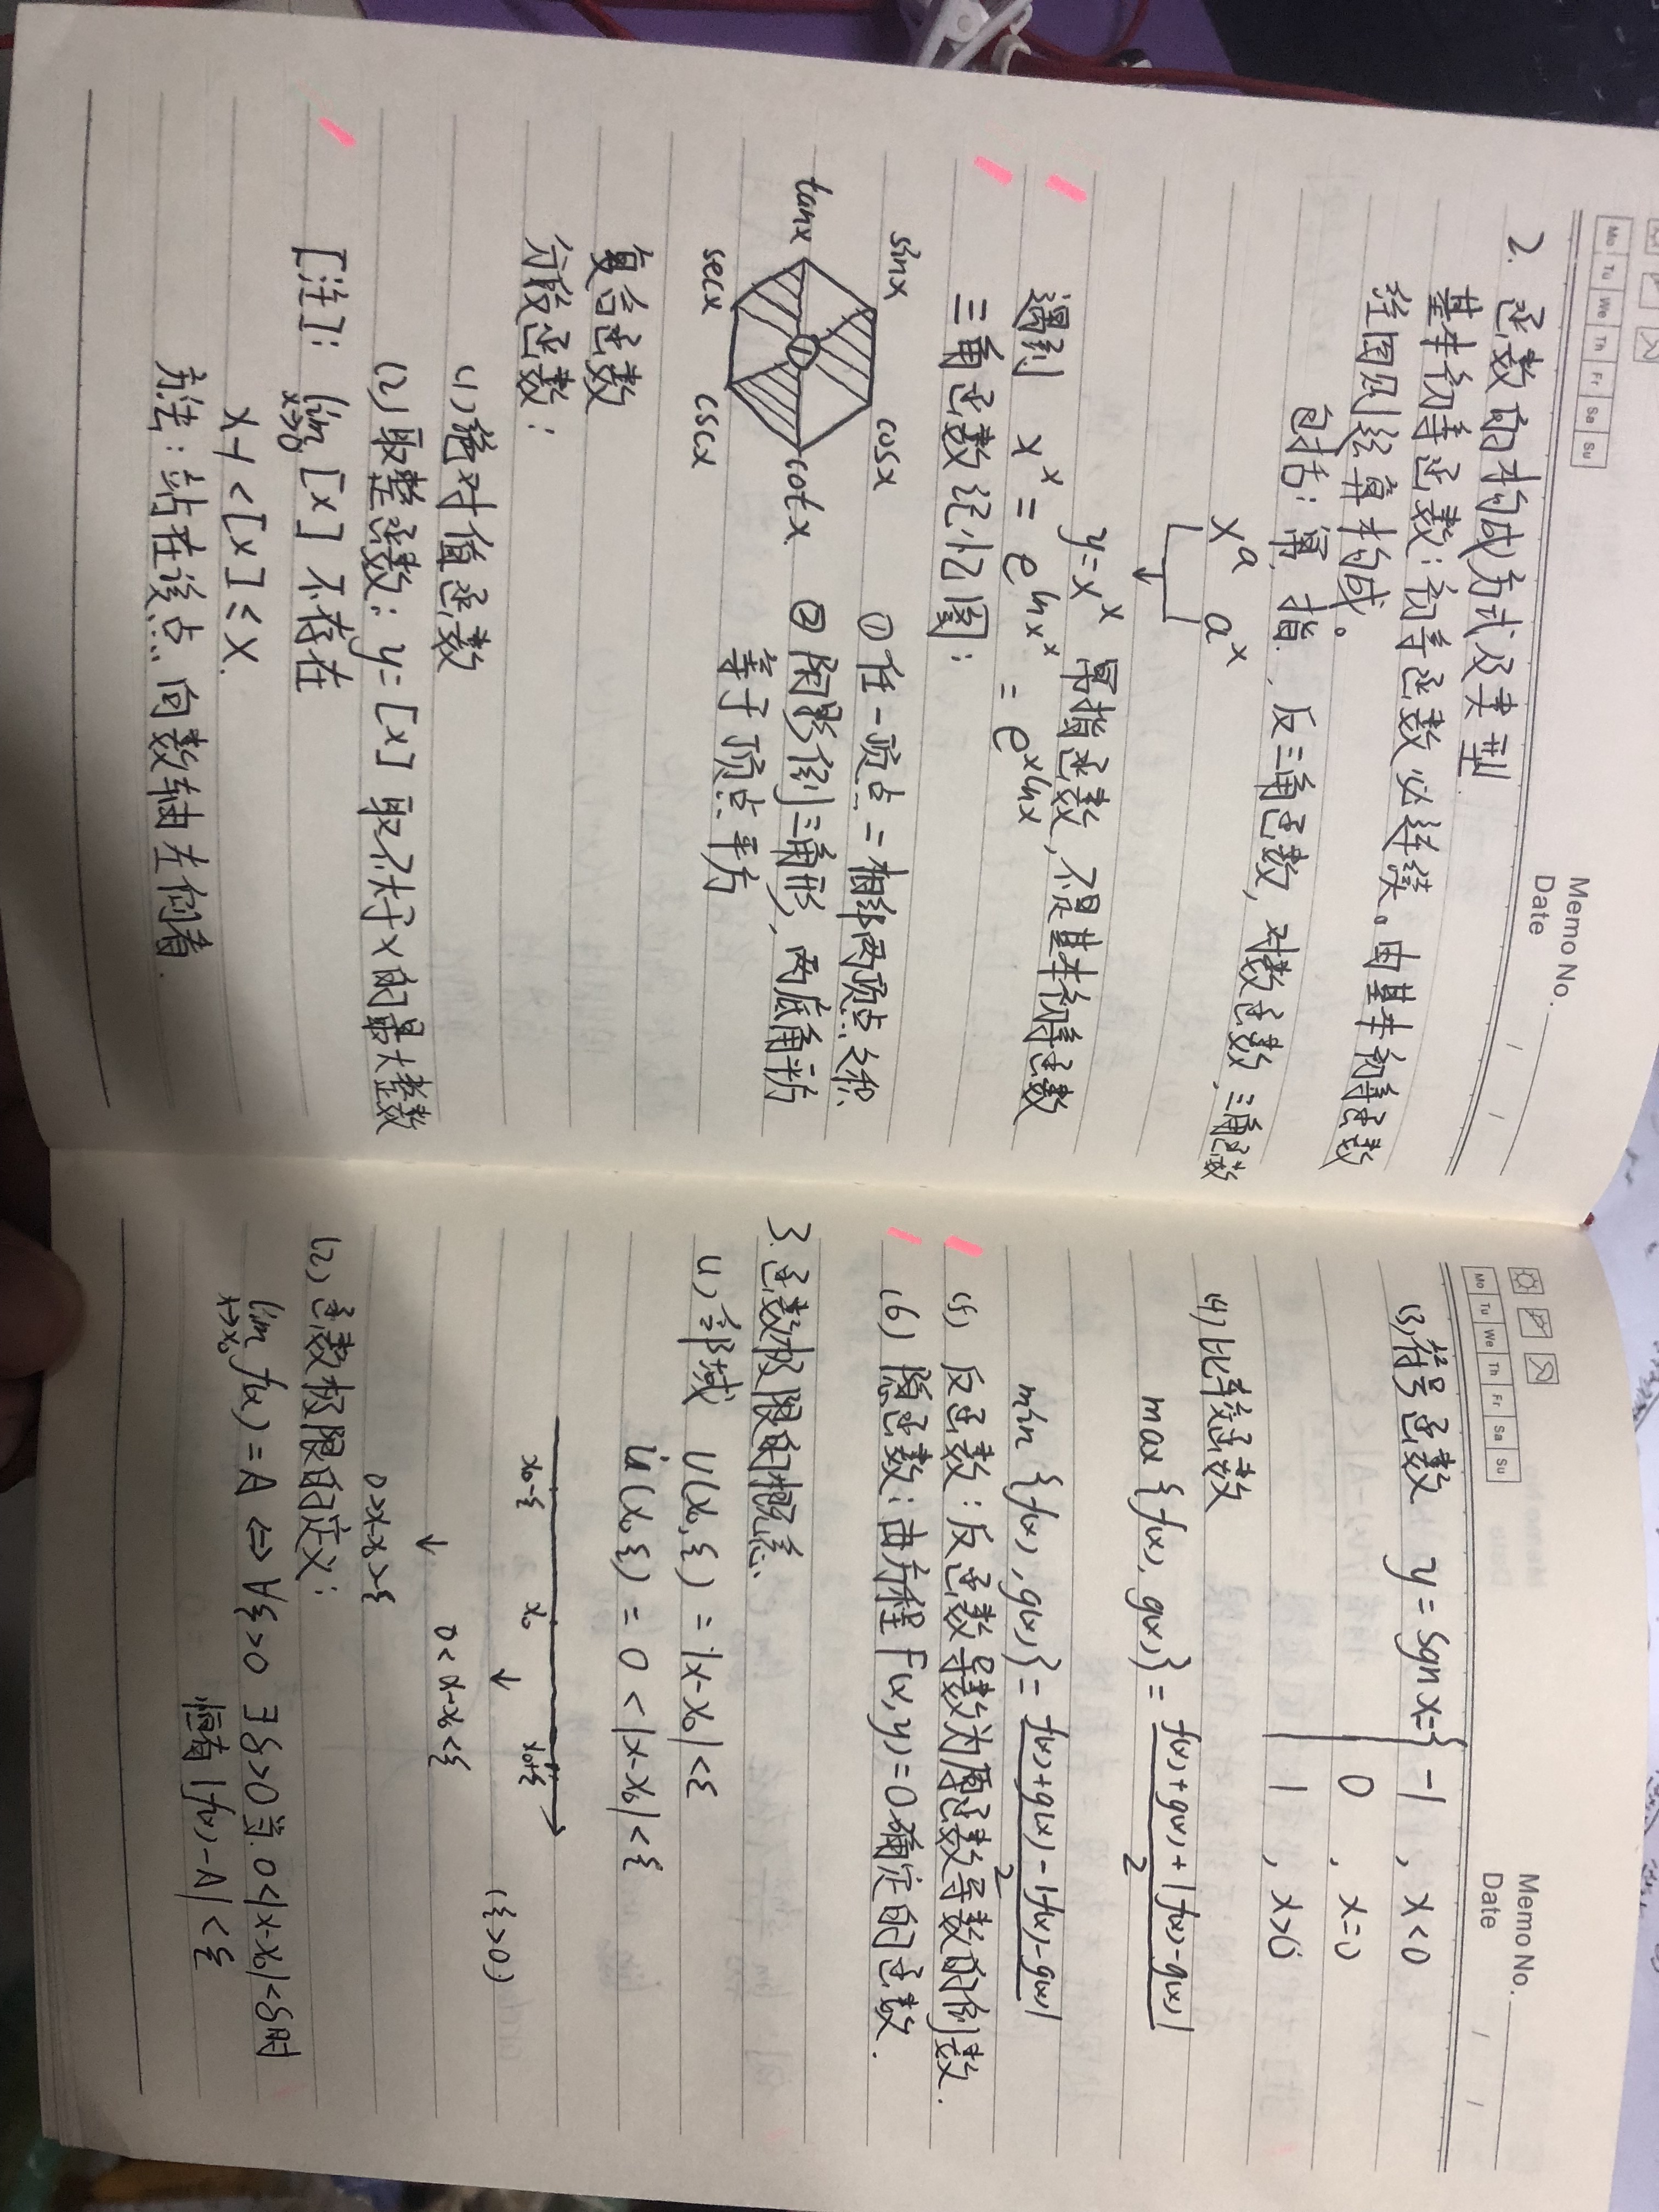 Mo Tu We Th Fr Sa Su
Memo No.
Date / /
2. 函数的构成方式及类型.
基本初等函数:初等函数必连续。由基本初等函数
经四则运算构成。
包括:幂, 指, 反三角函数, 对数函数, 三角函数
x^a a^x
y=x^x 幂指函数,不是基本初等函数
遇到 x^x = e^{lnx^x} = e^{xlnx}
三角函数记忆图:
sinx cosx
tanx 1 cotx
secx cscx
① 任一顶点=相邻两顶点之积
② 阴影倒三角形,两底角平方
等于顶点平方
复合函数
分段函数:
(1)绝对值函数
(2)取整函数: y=[x] 取不大于x的最大整数
[注]: lim_{x→0} [x] 不存在
x-1<[x]≤x.
方法:站在该点,向数轴左侧看.
Mo Tu We Th Fr Sa Su
Memo No.
Date / /
(3)符号函数 y=sgnx={ -1 , x<0
0 , x=0
1 , x>0
(4)比较函数
max{f(x), g(x)} = \frac{f(x)+g(x)+|f(x)-g(x)|}{2}
min{f(x), g(x)} = \frac{f(x)+g(x)-|f(x)-g(x)|}{2}
(5) 反函数:反函数导数为原函数导数的倒数.
(6) 隐函数:由方程F(x,y)=0确定的函数.
3.函数极限的概念.
(1)邻域 U(x₀,ξ) = |x-x₀|<ξ
ů(x₀,ξ) = 0<|x-x₀|<ξ
x₀-ξ x₀ x₀+ξ
↓ (ξ>0)
0<x-x₀<ξ
↓
0>x-x₀>-ξ
(2)函数极限的定义:
lim_{x→x₀} f(x)=A ⇔ ∀ξ>0 ∃δ>0当 0<|x-x₀|<δ时
恒有|f(x)-A|<ξ